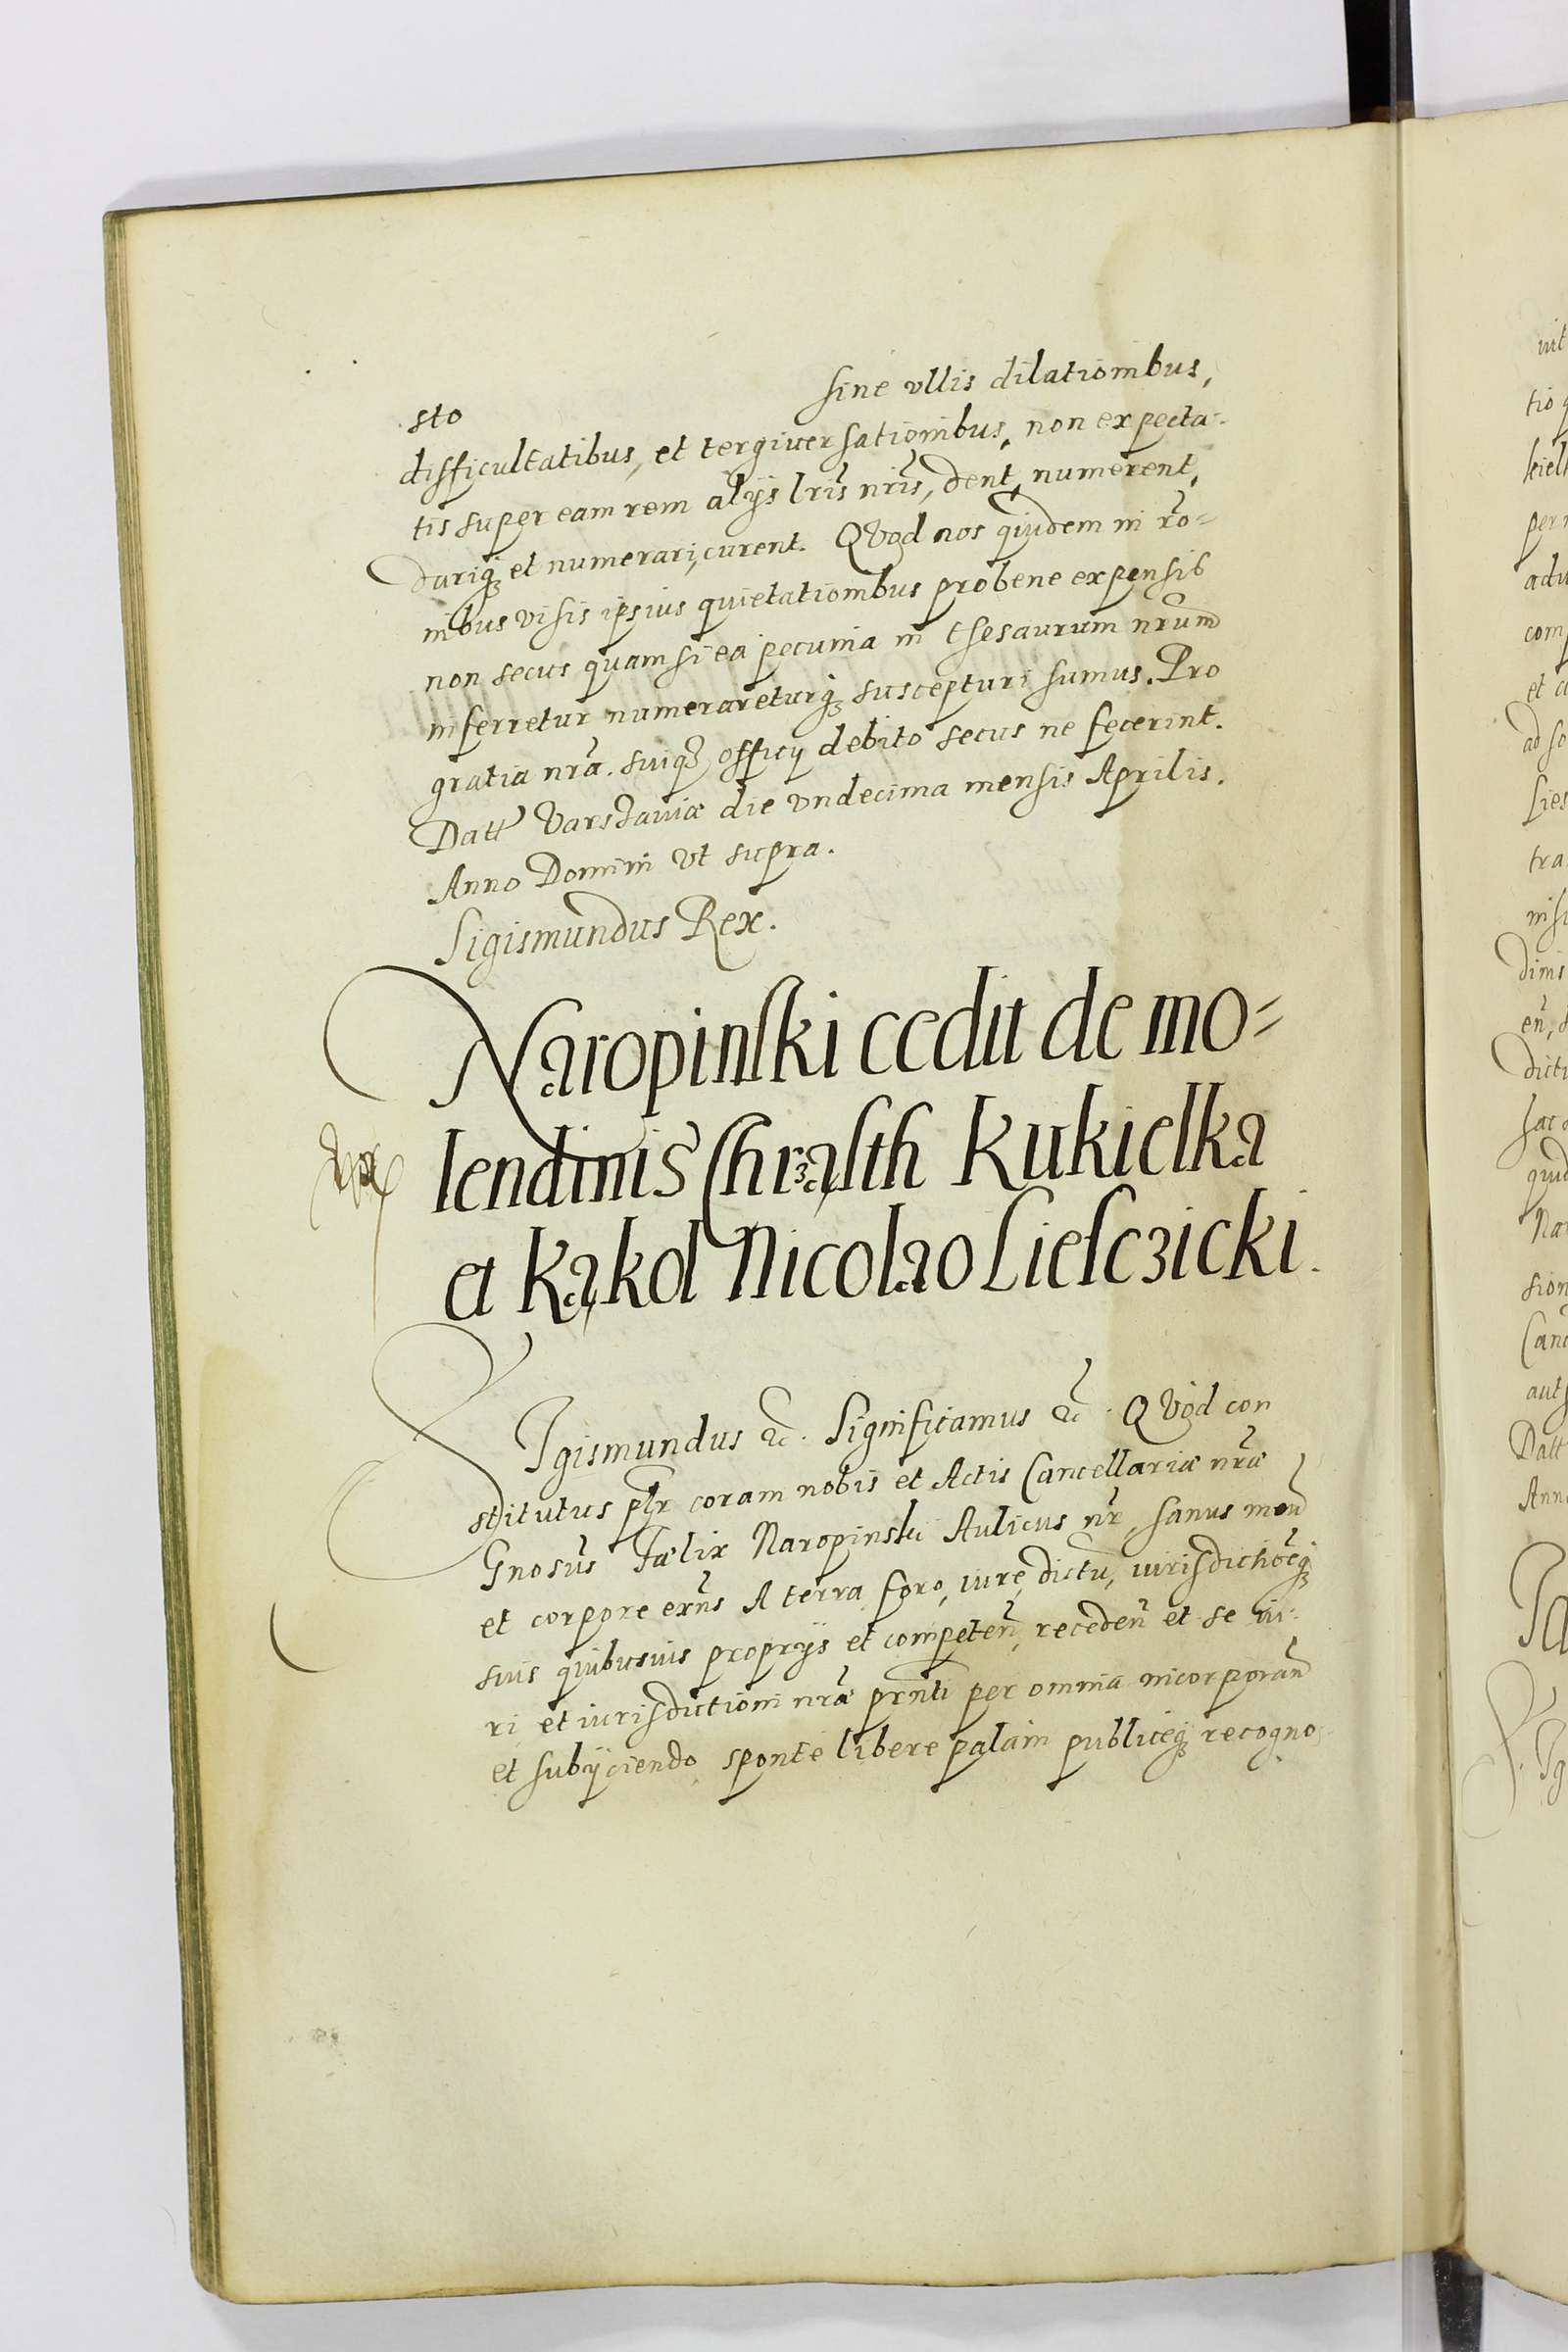 sto sine vllis dilationibus,
difficultatibus, et tergiuersationibus, non expecta-
tis super eam rem alijs lris nris, dent, numerent,
dariq₃ et numerari, curent. QVod nos quidem in ro-
nibus visis ipsius quietationibus pro bene expensis
non secus quam si ea pecunia in thesaurum nrum
inferretur numerareturq₃ suscepturi sumus. Pro
gratia nra. suiq₃ officij debito secus ne fecerint.
Datt Varschauiæ die vndecima mensis Aprilis.
Anno Domini vt supra.
Sigismundus Rex.
Naropinski cedit de mo=
lendinis Chrząsth Kukielka
et Kąkol Nicolao Liesczicki.
SIgismundus &c. Significamus &c. QVod con
stitutus plr coram nobis et Actis Cancellariæ nræ
Gnosus Fælix Naropinski Aulicus nr, sanus men
et corpore exns A terra, foro, iure, dictu, iurisdictioeq₃
suis quibusuis proprijs et competen, receden et se iu-
ri et iurisdictioni nræ prnti per omnia incorporan
et subijciendo sponte libere palam publiceq₃ recogno